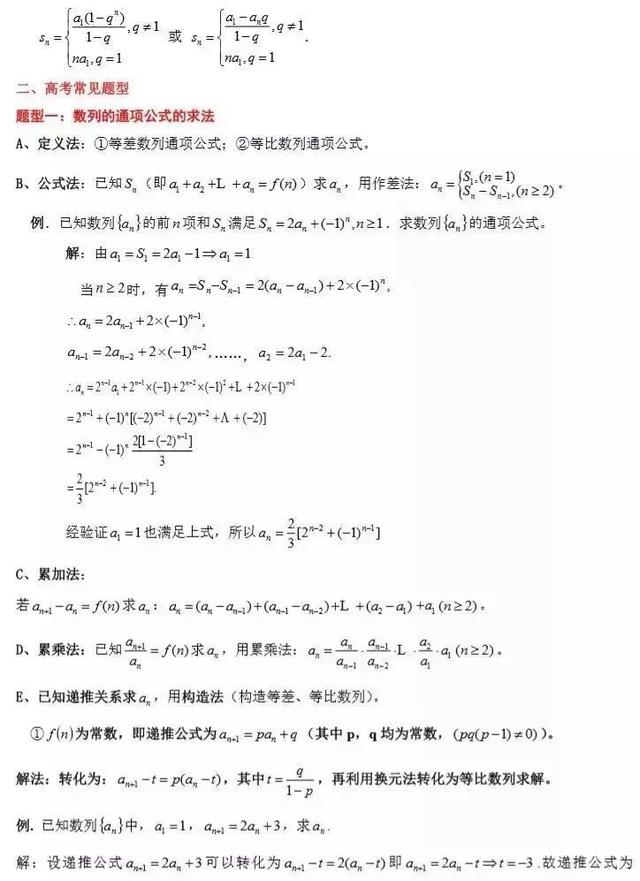 sₙ = { a₁(1-qⁿ)/(1-q), q≠1 ; na₁, q=1 或 sₙ = { (a₁-aₙq)/(1-q), q≠1 ; na₁, q=1 .
二、高考常见题型
题型一：数列的通项公式的求法
A、定义法：①等差数列通项公式；②等比数列通项公式。
B、公式法：已知Sₙ（即a₁+a₂+L +aₙ=f(n)）求aₙ，用作差法：aₙ={S₁,(n=1) ; Sₙ-Sₙ₋₁,(n≥2)。
例．已知数列{aₙ}的前n项和Sₙ满足Sₙ=2aₙ+(-1)ⁿ,n≥1．求数列{aₙ}的通项公式。
解：由a₁=S₁=2a₁-1⇒a₁=1
当n≥2时，有aₙ=Sₙ-Sₙ₋₁=2(aₙ-aₙ₋₁)+2×(-1)ⁿ,
∴aₙ=2aₙ₋₁+2×(-1)ⁿ⁻¹,
aₙ₋₁=2aₙ₋₂+2×(-1)ⁿ⁻²,……，a₂=2a₁-2.
∴aₙ=2ⁿ⁻¹a₁+2ⁿ⁻¹×(-1)+2ⁿ⁻²×(-1)²+L +2×(-1)ⁿ⁻¹
=2ⁿ⁻¹+(-1)ⁿ[(-2)ⁿ⁻¹+(-2)ⁿ⁻²+Λ +(-2)]
=2ⁿ⁻¹-(-1)ⁿ 2[1-(-2)ⁿ⁻¹]/3
=2/3[2ⁿ⁻²+(-1)ⁿ⁻¹].
经验证a₁=1也满足上式，所以aₙ=2/3[2ⁿ⁻²+(-1)ⁿ⁻¹]
C、累加法：
若aₙ₊₁-aₙ=f(n)求aₙ：aₙ=(aₙ-aₙ₋₁)+(aₙ₋₁-aₙ₋₂)+L +(a₂-a₁)+a₁(n≥2)。
D、累乘法：已知aₙ₊₁/aₙ=f(n)求aₙ，用累乘法：aₙ=aₙ/aₙ₋₁·aₙ₋₁/aₙ₋₂·L ·a₂/a₁·a₁(n≥2)。
E、已知递推关系求aₙ，用构造法（构造等差、等比数列）。
①f(n)为常数，即递推公式为aₙ₊₁=paₙ+q（其中p，q均为常数，(pq(p-1)≠0)）。
解法：转化为：aₙ₊₁-t=p(aₙ-t)，其中t=q/(1-p)，再利用换元法转化为等比数列求解。
例. 已知数列{aₙ}中，a₁=1，aₙ₊₁=2aₙ+3，求aₙ.
解：设递推公式aₙ₊₁=2aₙ+3可以转化为aₙ₊₁-t=2(aₙ-t)即aₙ₊₁=2aₙ-t⇒t=-3.故递推公式为